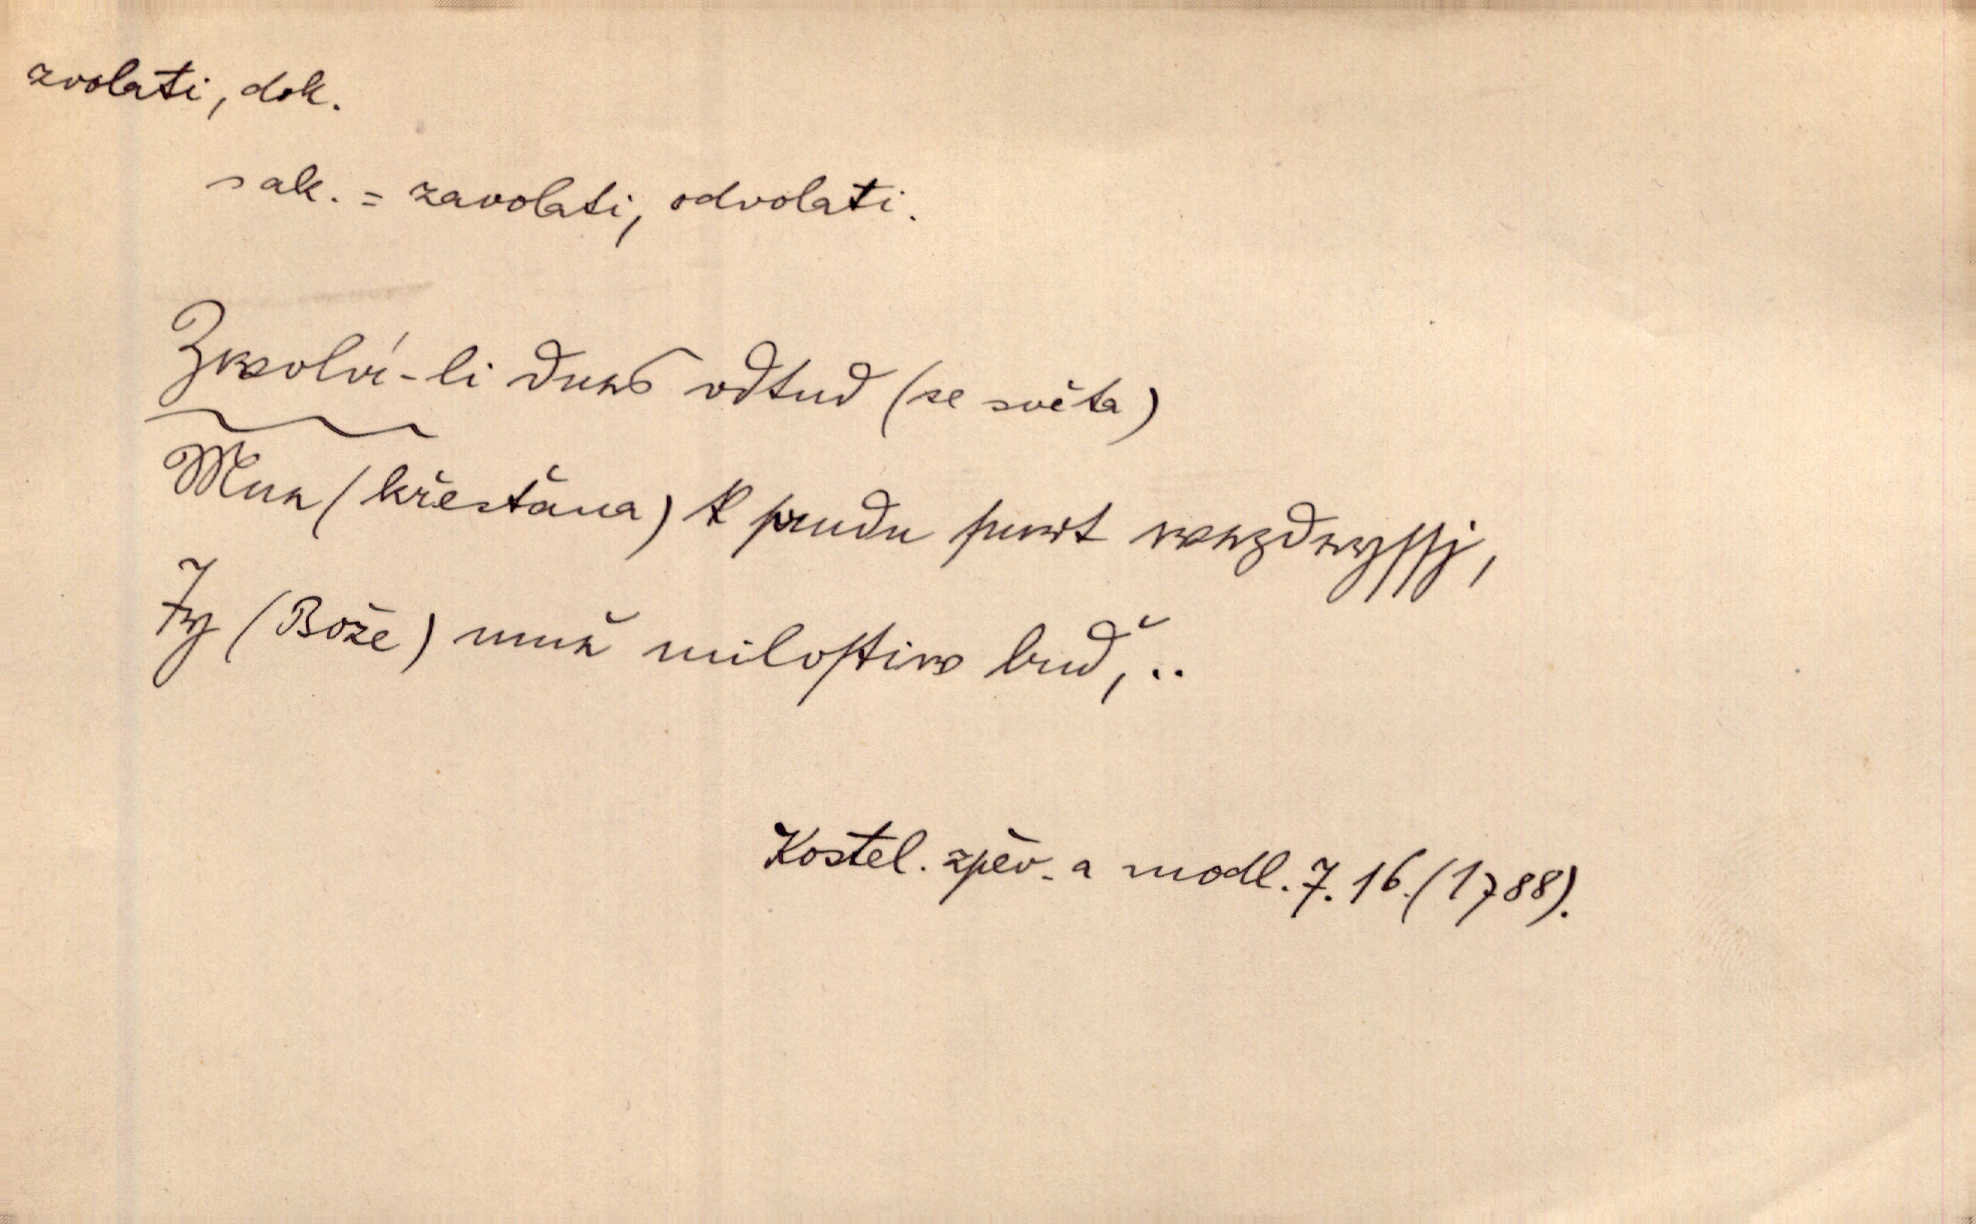 zvolati, dok.
s ak. = zavolati, odvolati.
Zwolá-li dnes odtud (se světa)
Mne (křesťana) k saudu smrt wezdeyssj,
Ty (Bože) mně milostiw buď, ..
Kostel. zpěv. a modl. 7. 16. (1788).